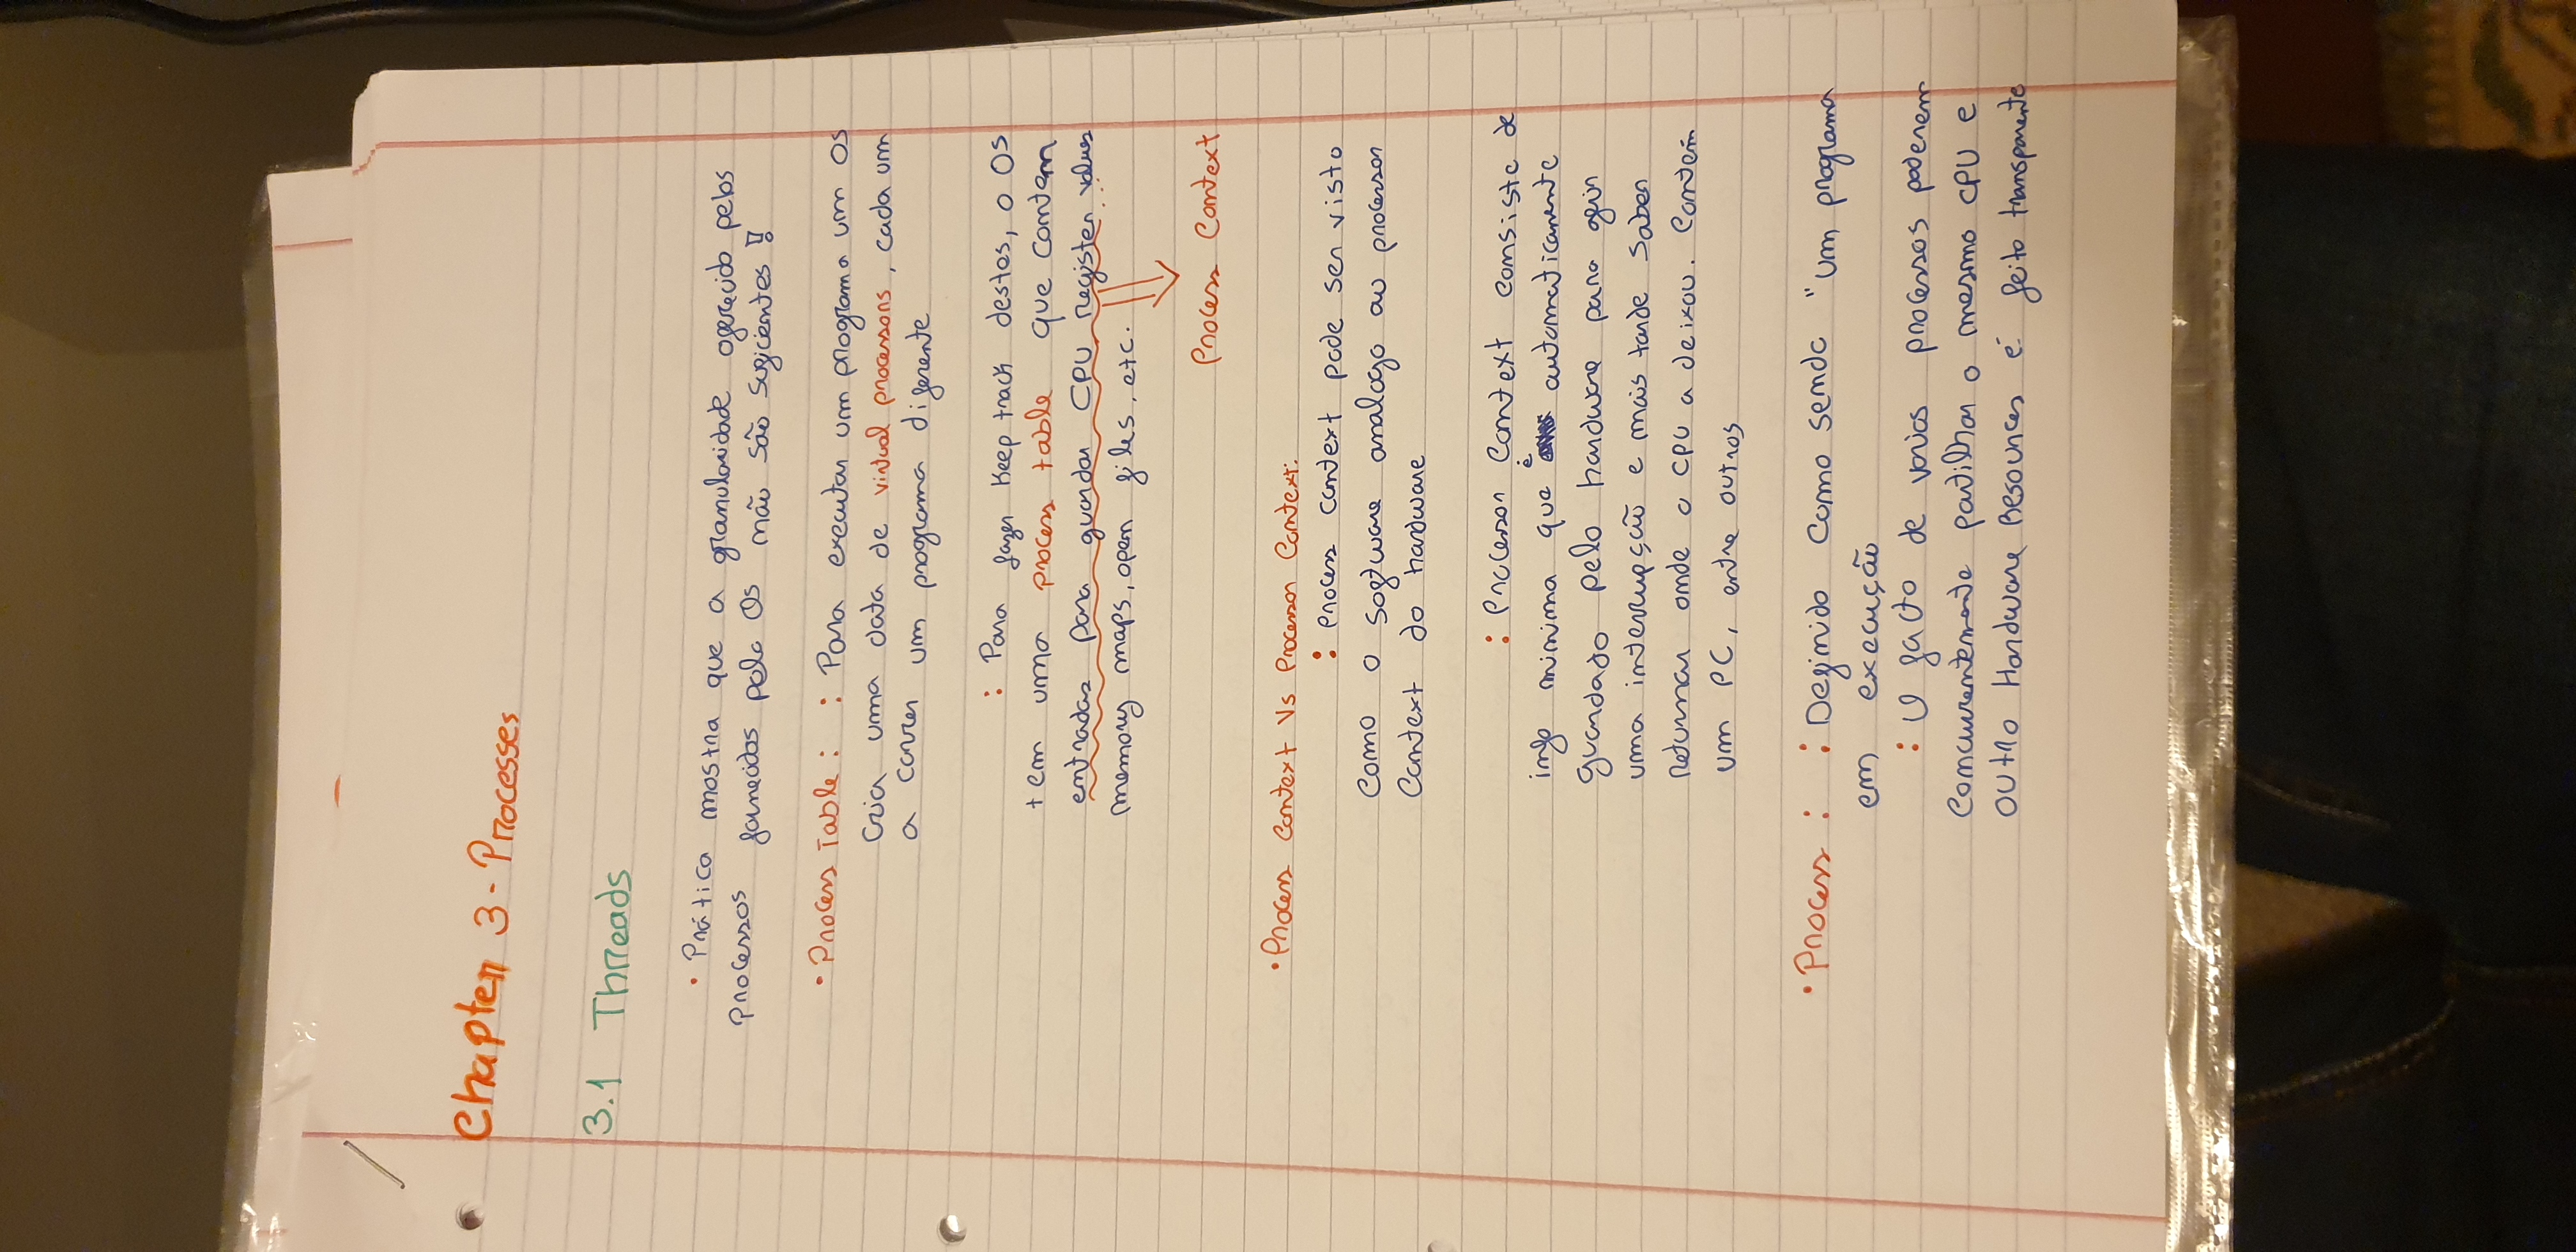 Chapter 3 - Processes
3.1 Threads
• Prática mostra que a granularidade oferecido pelos
processos fornecidos pelo OS não são suficientes !!
• Process Table : : Para executar um programa um OS
cria uma data de virtual processors, cada um
a correr um programa diferente
: Para fazer Keep track destes, o OS
tem uma process table que contem
entradas para guardar CPU register values
memory maps, open files, etc.
Process Context
• Process Context Vs Processor Context:
: Process context pode ser visto
como o software analogo ao processor
Context do hardware
: Processor Context consiste de
info minima que é automaticamente
guardado pelo hardware para gerir
uma interrupção e mais tarde saber
returnar onde o CPU a deixou. Contém
um PC, entre outros
• Process : : Definido como sendo "um programa
em execução
: O facto de varios processos poderem
concurrentemente partilhar o mesmo CPU e
outro Hardware Resources é feito transparente